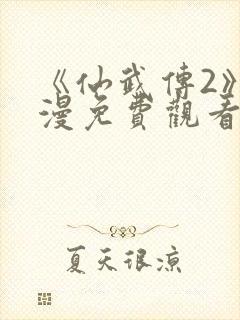 《仙武传2》
漫免費觀看
夏天很凉